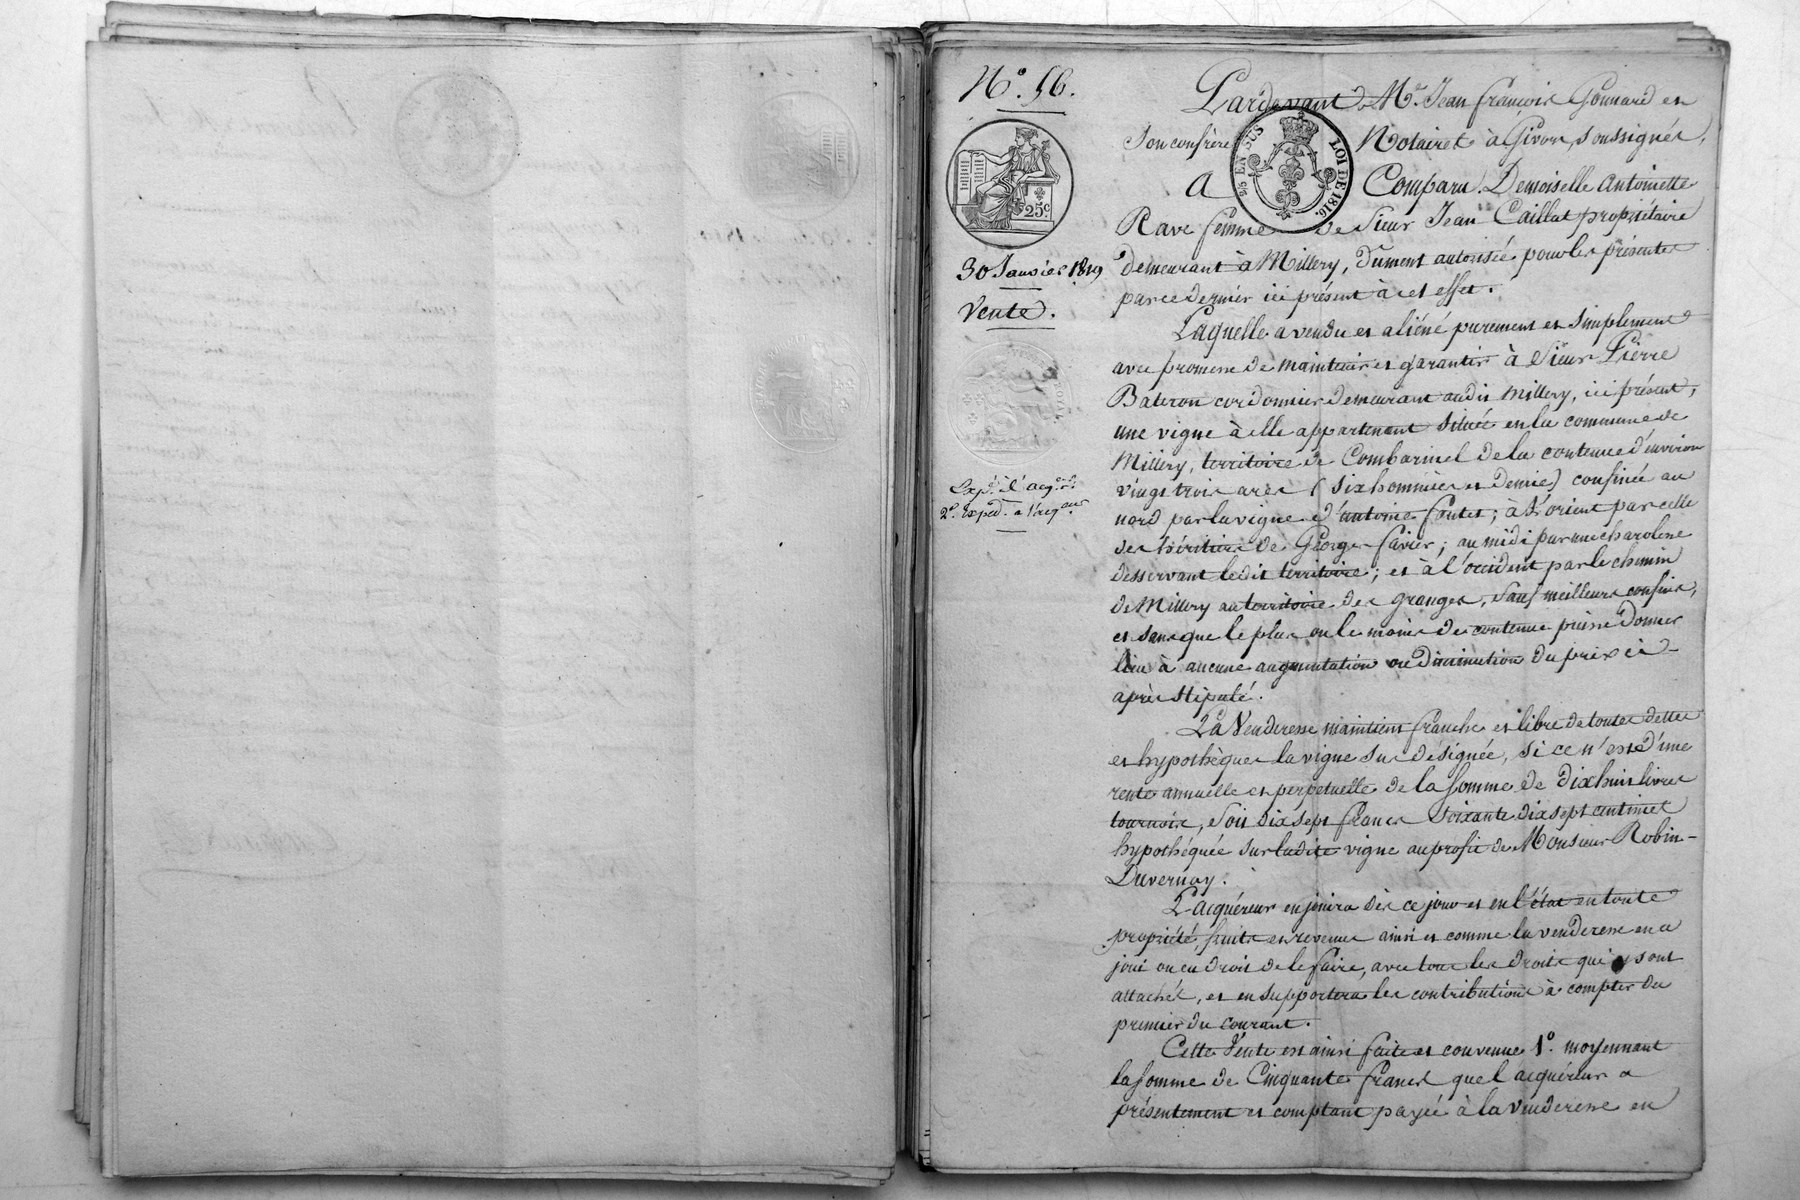 N.° 56.
25c
30 Janvier 1819
Vente.
Exp. à l'acq.
2e. Exped. a l'acq.eur
25 EN SUS
LOI DE 1816.
Pardevant Me. Jean françois Gonnard et
Son confrère Notaires à Givors, soussignés,
A Comparu Demoiselle antoinette
Rave femme de Sieur Jean Caillat propriétaire
demeurant à Millery, dûment autorisée pour les présentes
par ce dernier ici présent à cet effet.
Laquelle a vendu et aliéné purement et simplement
avec promesse de maintenir et garantir à Sieur Pierre
Bateron cordonnier demeurant audit Millery, ici présent,
une vigne à elle appartenant située en la commune de
Millery, territoire de Combarinel de la contenue d'environ
vingt trois ares (six hommées et demie) confinée au
nord par la vigne d'antoine fontet; à l'orient par celle
des héritiers de George favier; au midi par une charolene
desservant ledit territoire; et à l'occident par le chemin
de Millery au territoire des granges, sauf meilleurs confins,
et sans que le plus ou le moins de contenue puisse donner
lieu à aucune augmentation ou diminution du prix ci-
après stipulé.
La Venderesse maintient franche et libre de toutes dettes
et hypothèques la vigne sus désignée, si ce n'est d'une
rente annuelle et perpetuelle de la somme de dix huit livres
tournois, soit dix sept francs soixante dix sept centimes
hypothéquée sur ladite vigne au profit de Monsieur Robin-
Duvernay.
L'acquéreur en jouira dès ce jour et en l'état en toute
propriété, fruits et revenus ainsi et comme la venderesse en a
joui ou eu droit de le faire, avec tous les droits qui y sont
attachés, et en supportera les contributions à compter du
premier du courant.
Cette Vente est ainsi faite et convenue 1°. moyennant
la somme de Cinquante francs que l'acquéreur a
présentement et comptant payée à la venderesse en